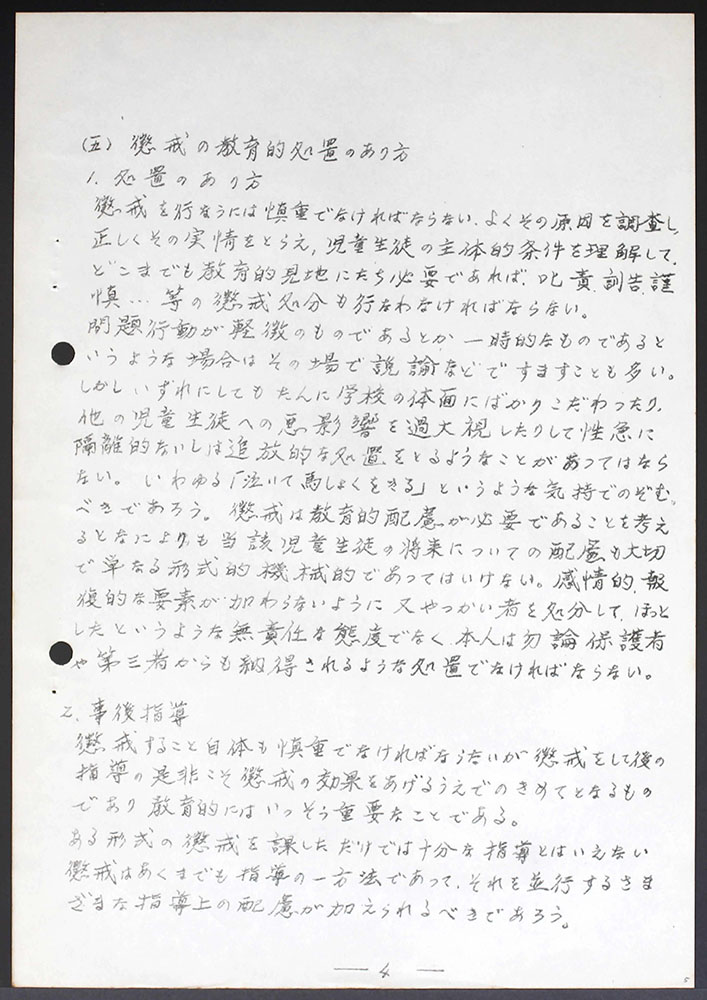 (五) 懲戒の教育的処置のあり方
1. 処置のあり方
懲戒を行なうには慎重でなければならない、よくその原因を調査し
正しくその実情をとらえ、児童生徒の主体的条件を理解して、
どこまでも教育的見地にたち必要であれば、叱責、訓告、謹
慎…等の懲戒処分も行なわなければならない。
問題行動が軽微のものであるとか、一時的なものであると
いうような場合はその場で説諭などですますことも多い。
しかしいずれにしてもたんに学校の体面にばかりこだわったり、
他の児童生徒への悪影響を過大視したりして性急に
隔離的ないしは追放的な処置をとるようなことがあってはなら
ない。いわゆる「泣いて馬しょくをきる」というような気持でのぞむ
べきであろう。懲戒は教育的配慮が必要であることを考え
るとなによりも当該児童生徒の将来についての配慮も大切
で単なる形式的機械的であってはいけない。感情的、報
復的な要素が加わらないように又やっかい者を処分して、ほっと
したというような無責任な態度でなく、本人は勿論保護者
や第三者からも納得されるような処置でなければならない。
2. 事後指導
懲戒すること自体も慎重でなければならないが懲戒をして後の
指導の是非こそ懲戒の効果をあげるうえでのきめてとなるもの
であり教育的にはいっそう重要なことである。
ある形式の懲戒を課しただけでは十分な指導とはいえない
懲戒はあくまでも指導の一方法であって、それを並行するさま
ざまな指導上の配慮が加えられるべきであろう。
— 4 —
5